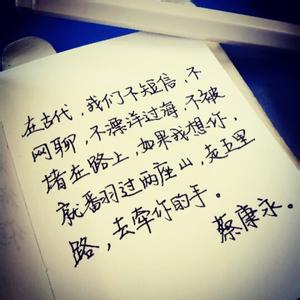 在古代，我们不短信，不
网聊，不漂洋过海，不被
堵在路上，如果我想你，
就翻过两座山，走五里
路，去牵你的手。
蔡康永。